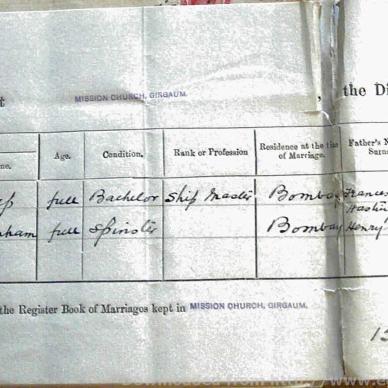 MISSION CHURCH, GIRGAUM.
the Di
Age. Condition. Rank or Profession Residence at the time of Marriage. Father's N
full Bachelor Ship Master Bombay
nham full Spinster Bombay Henry
the Register Book of Marriages kept in MISSION CHURCH, GIRGAUM.